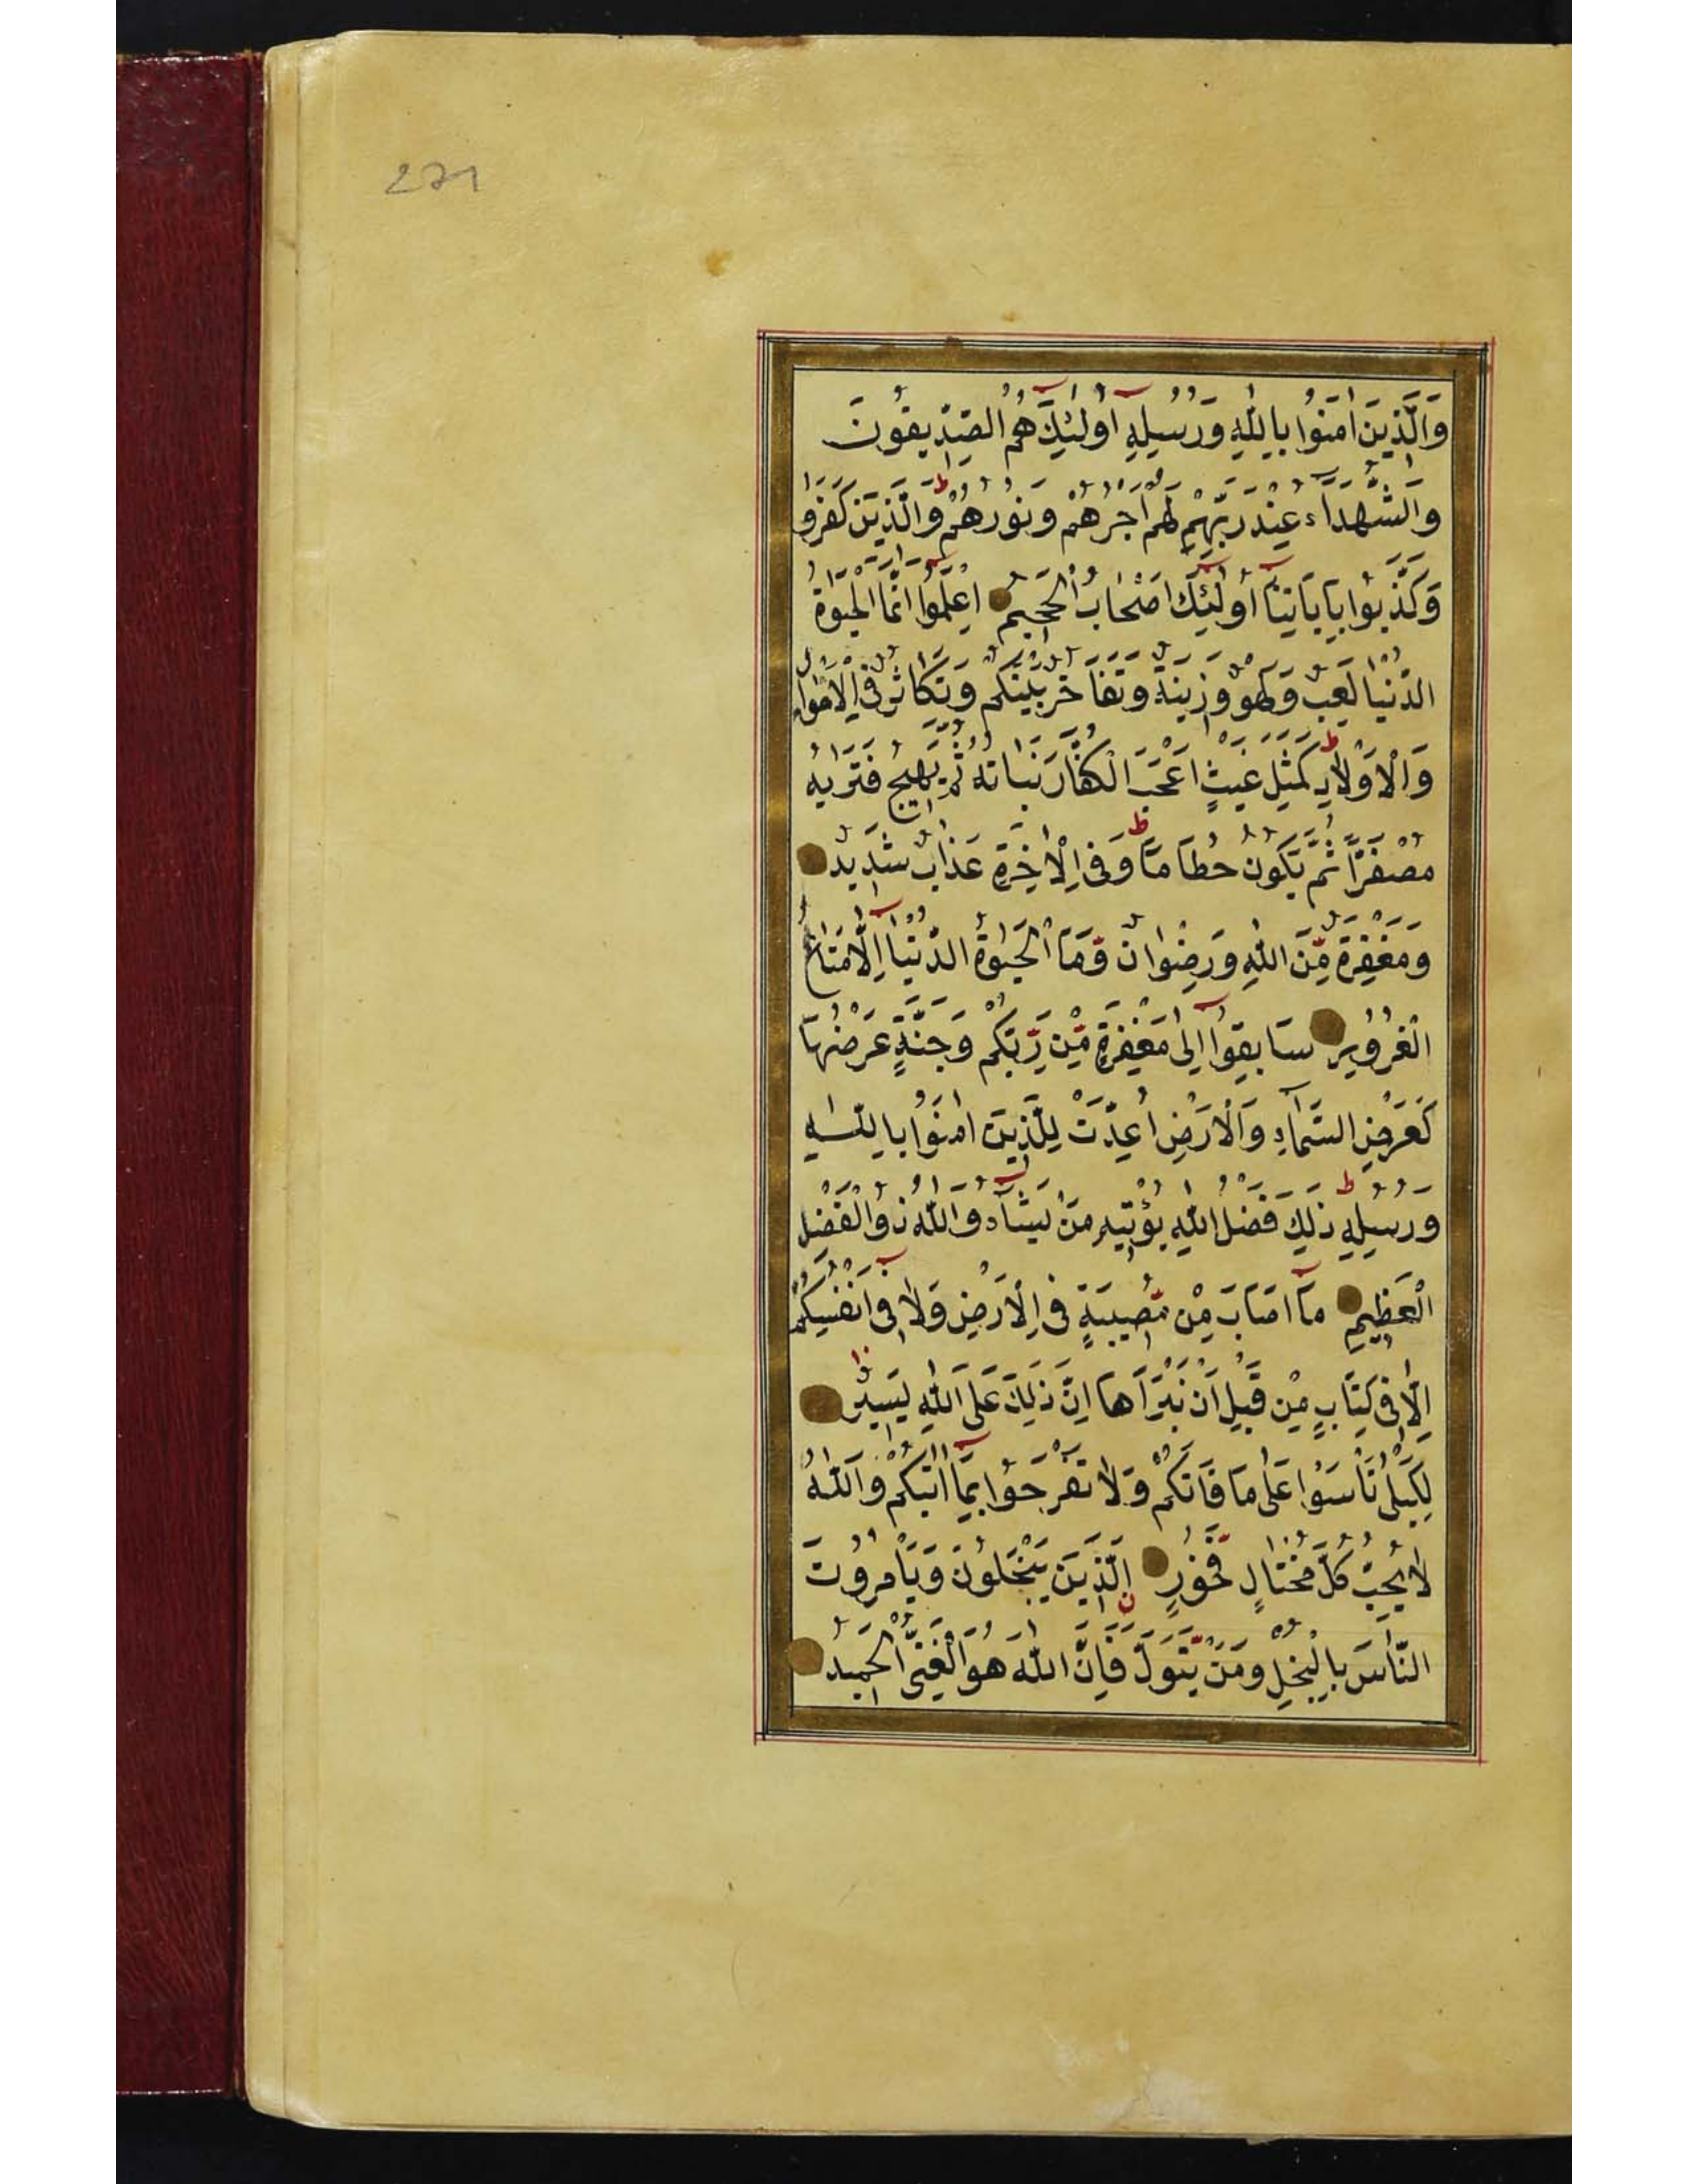 271
وَالَّذِينَ اٰمَنُوا بِاللّٰهِ وَرُسُلِهٖ اُولٰئِكَ هُمُ الصِّدِّيقُونَ
وَالشُّهَدَاۤءُ عِنْدَ رَبِّهِمْ لَهُمْ اَجْرُهُمْ وَنُورُهُمْ ط وَالَّذِينَ كَفَرُوا
وَكَذَّبُوا بِاٰيَاتِنَاۤ اُولٰۤئِكَ اَصْحَابُ الْجَحِيمِ اِعْلَمُوۤا اَنَّمَا الْحَيٰوةُ
الدُّنْيَا لَعِبٌ وَلَهْوٌ وَزِينَةٌ وَتَفَاخُرٌ بَيْنَكُمْ وَتَكَاثُرٌ فِى الْاَمْوَالِ
وَالْاَوْلَادِ ط كَمَثَلِ غَيْثٍ اَعْجَبَ الْكُفَّارَ نَبَاتُهُ ثُمَّ يَهِيجُ فَتَرٰيهُ
مُصْفَرًّا ثُمَّ يَكُونُ حُطَامًا ط وَفِى الْاٰخِرَةِ عَذَابٌ شَدِيدٌ
وَمَغْفِرَةٌ مِّنَ اللّٰهِ وَرِضْوَانٌ وَّمَا الْحَيٰوةُ الدُّنْيَاۤ اِلَّا مَتَاعُ
الْغُرُورِ سَابِقُوۤا اِلٰى مَغْفِرَةٍ مِّنْ رَّبِّكُمْ وَجَنَّةٍ عَرْضُهَا
كَعَرْضِ السَّمَاۤءِ وَالْاَرْضِ اُعِدَّتْ لِلَّذِينَ اٰمَنُوا بِاللّٰهِ
وَرُسُلِهٖ ط ذٰلِكَ فَضْلُ اللّٰهِ يُؤْتِيهِ مَنْ يَشَاۤءُ وَاللّٰهُ ذُو الْفَضْلِ
الْعَظِيمِ مَاۤ اَصَابَ مِنْ مُّصِيبَةٍ فِى الْاَرْضِ وَلَا فِىۤ اَنْفُسِكُمْ
اِلَّا فِى كِتَابٍ مِنْ قَبْلِ اَنْ نَبْرَاَهَا اِنَّ ذٰلِكَ عَلَى اللّٰهِ يَسِيرٌ
لِكَيْلَا تَأْسَوْا عَلٰى مَا فَاتَكُمْ وَلَا تَفْرَحُوا بِمَاۤ اٰتٰيكُمْ وَاللّٰهُ
لَا يُحِبُّ كُلَّ مُخْتَالٍ فَخُورٍ اَلَّذِينَ يَبْخَلُونَ وَيَأْمُرُونَ
النَّاسَ بِالْبُخْلِ وَمَنْ يَّتَوَلَّ فَاِنَّ اللّٰهَ هُوَ الْغَنِىُّ الْحَمِيدُ